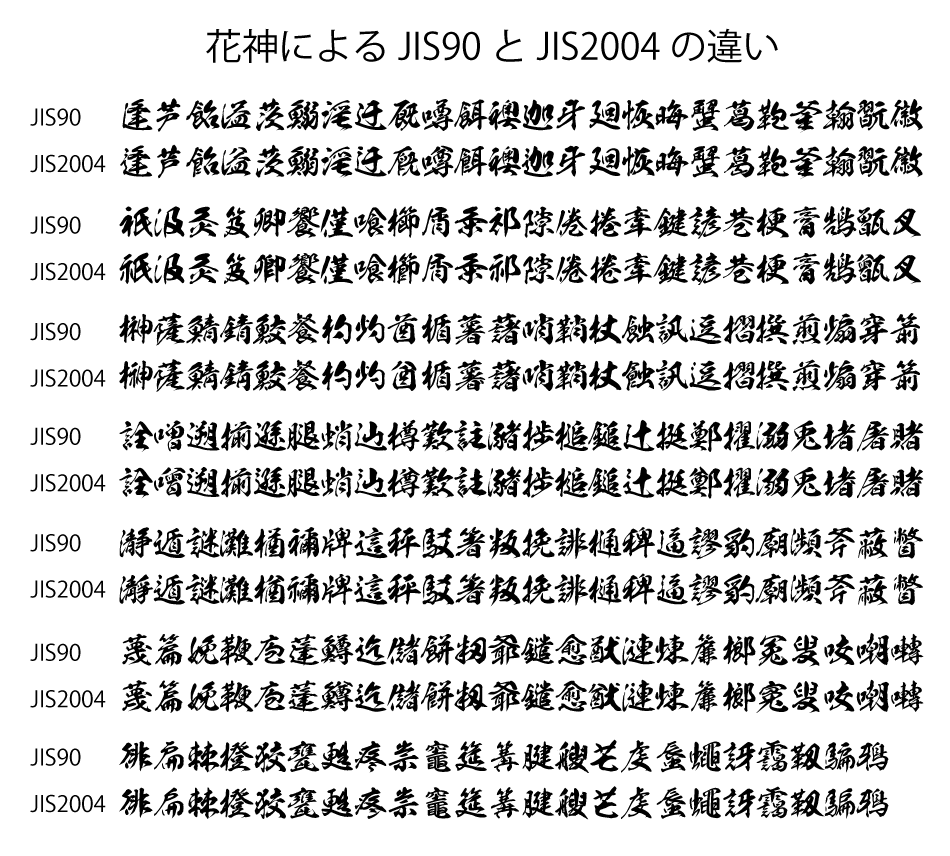 花神による JIS90 と JIS2004 の違い
JIS90 逢芦飴溢茨鰯淫迂厩噂餌襖迦牙廻恢晦蟹葛鞄釜翰翫徽
JIS2004 逢芦飴溢茨鰯淫迂厩噂餌襖迦牙廻恢晦蟹葛鞄釜翰翫徽
JIS90 祇汲灸笈卿饗僅喰櫛屑粂祁隙倦捲牽鍵諺巷梗膏鵠甑叉
JIS2004 祇汲灸笈卿饗僅喰櫛屑粂祁隙倦捲牽鍵諺巷梗膏鵠甑叉
JIS90 榊薩鯖錆鮫餐杓灼酋楯薯藷哨鞘杖蝕訊逗摺撰煎煽穿箭
JIS2004 榊薩鯖錆鮫餐杓灼酋楯薯藷哨鞘杖蝕訊逗摺撰煎煽穿箭
JIS90 詮噌遡揃遜腿蛸辿樽歎註瀦捗槌鎚辻挺鄭擢溺兎堵屠賭
JIS2004 詮噌遡揃遜腿蛸辿樽歎註瀦捗槌鎚辻挺鄭擢溺兎堵屠賭
JIS90 瀞遁謎灘楢禰牌這秤駁箸叛挽誹樋稗逼謬豹廟瀕斧蔽瞥
JIS2004 瀞遁謎灘楢禰牌這秤駁箸叛挽誹樋稗逼謬豹廟瀕斧蔽瞥
JIS90 蔑篇娩鞭庖蓬鱒迄儲餅籾爺鑓愈猷漣煉簾榔冤叟咬嘲囀
JIS2004 蔑篇娩鞭庖蓬鱒迄儲餅籾爺鑓愈猷漣煉簾榔冤叟咬嘲囀
JIS90 徘扁棘橙狡甕甦疼祟竈筵篝腱艘芒虔蜃蠅訝靄靱騙鴉
JIS2004 徘扁棘橙狡甕甦疼祟竈筵篝腱艘芒虔蜃蠅訝靄靱騙鴉